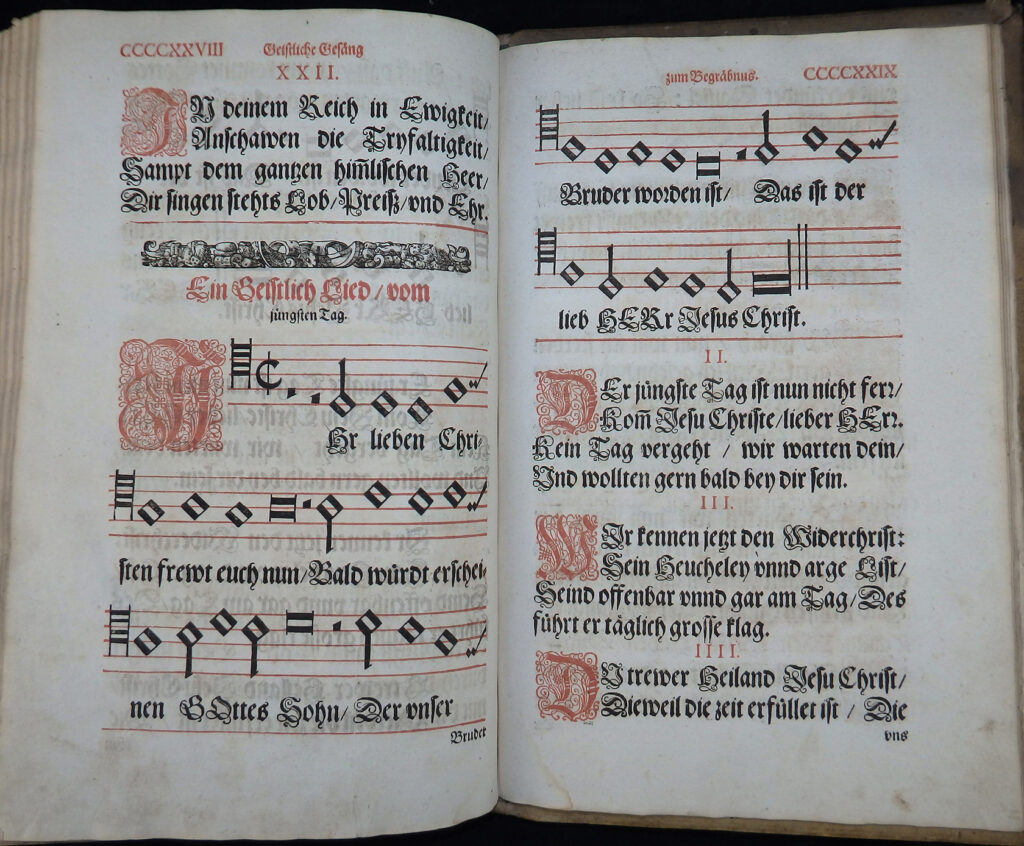 CCCCXXVIII Geistliche Gesäng
XXII.
IN deinem Reich in Ewigkeit/
Anschawen die Tryfaltigkeit/
Sampt dem gantzen him̃lischen Heer/
Dir singen stehts Lob/Preiß/vnd Ehr.
Ein Geistlich Lied/vom
jüngsten Tag.
IHr lieben Chri/
sten frewt euch nun/Bald würdt erschei/
nen GOttes Sohn/Der vnser
Bruder
zum Begräbnus. CCCCXXIX
Bruder worden ist/ Das ist der
lieb HERr Jesus Christ.
II.
DEr jüngste Tag ist nun nicht ferr/
Kom̃ Jesu Christe/lieber HErr.
Kein Tag vergeht / wir warten dein/
Vnd wollten gern bald bey dir sein.
III.
WIr kennen jetzt den Widerchrist:
Sein Heucheley vnnd arge List/
Seind offenbar vnnd gar am Tag/Des
führt er täglich grosse klag.
IIII.
DV trewer Heiland Jesu Christ/
Dieweil die zeit erfüllet ist / Die
vns